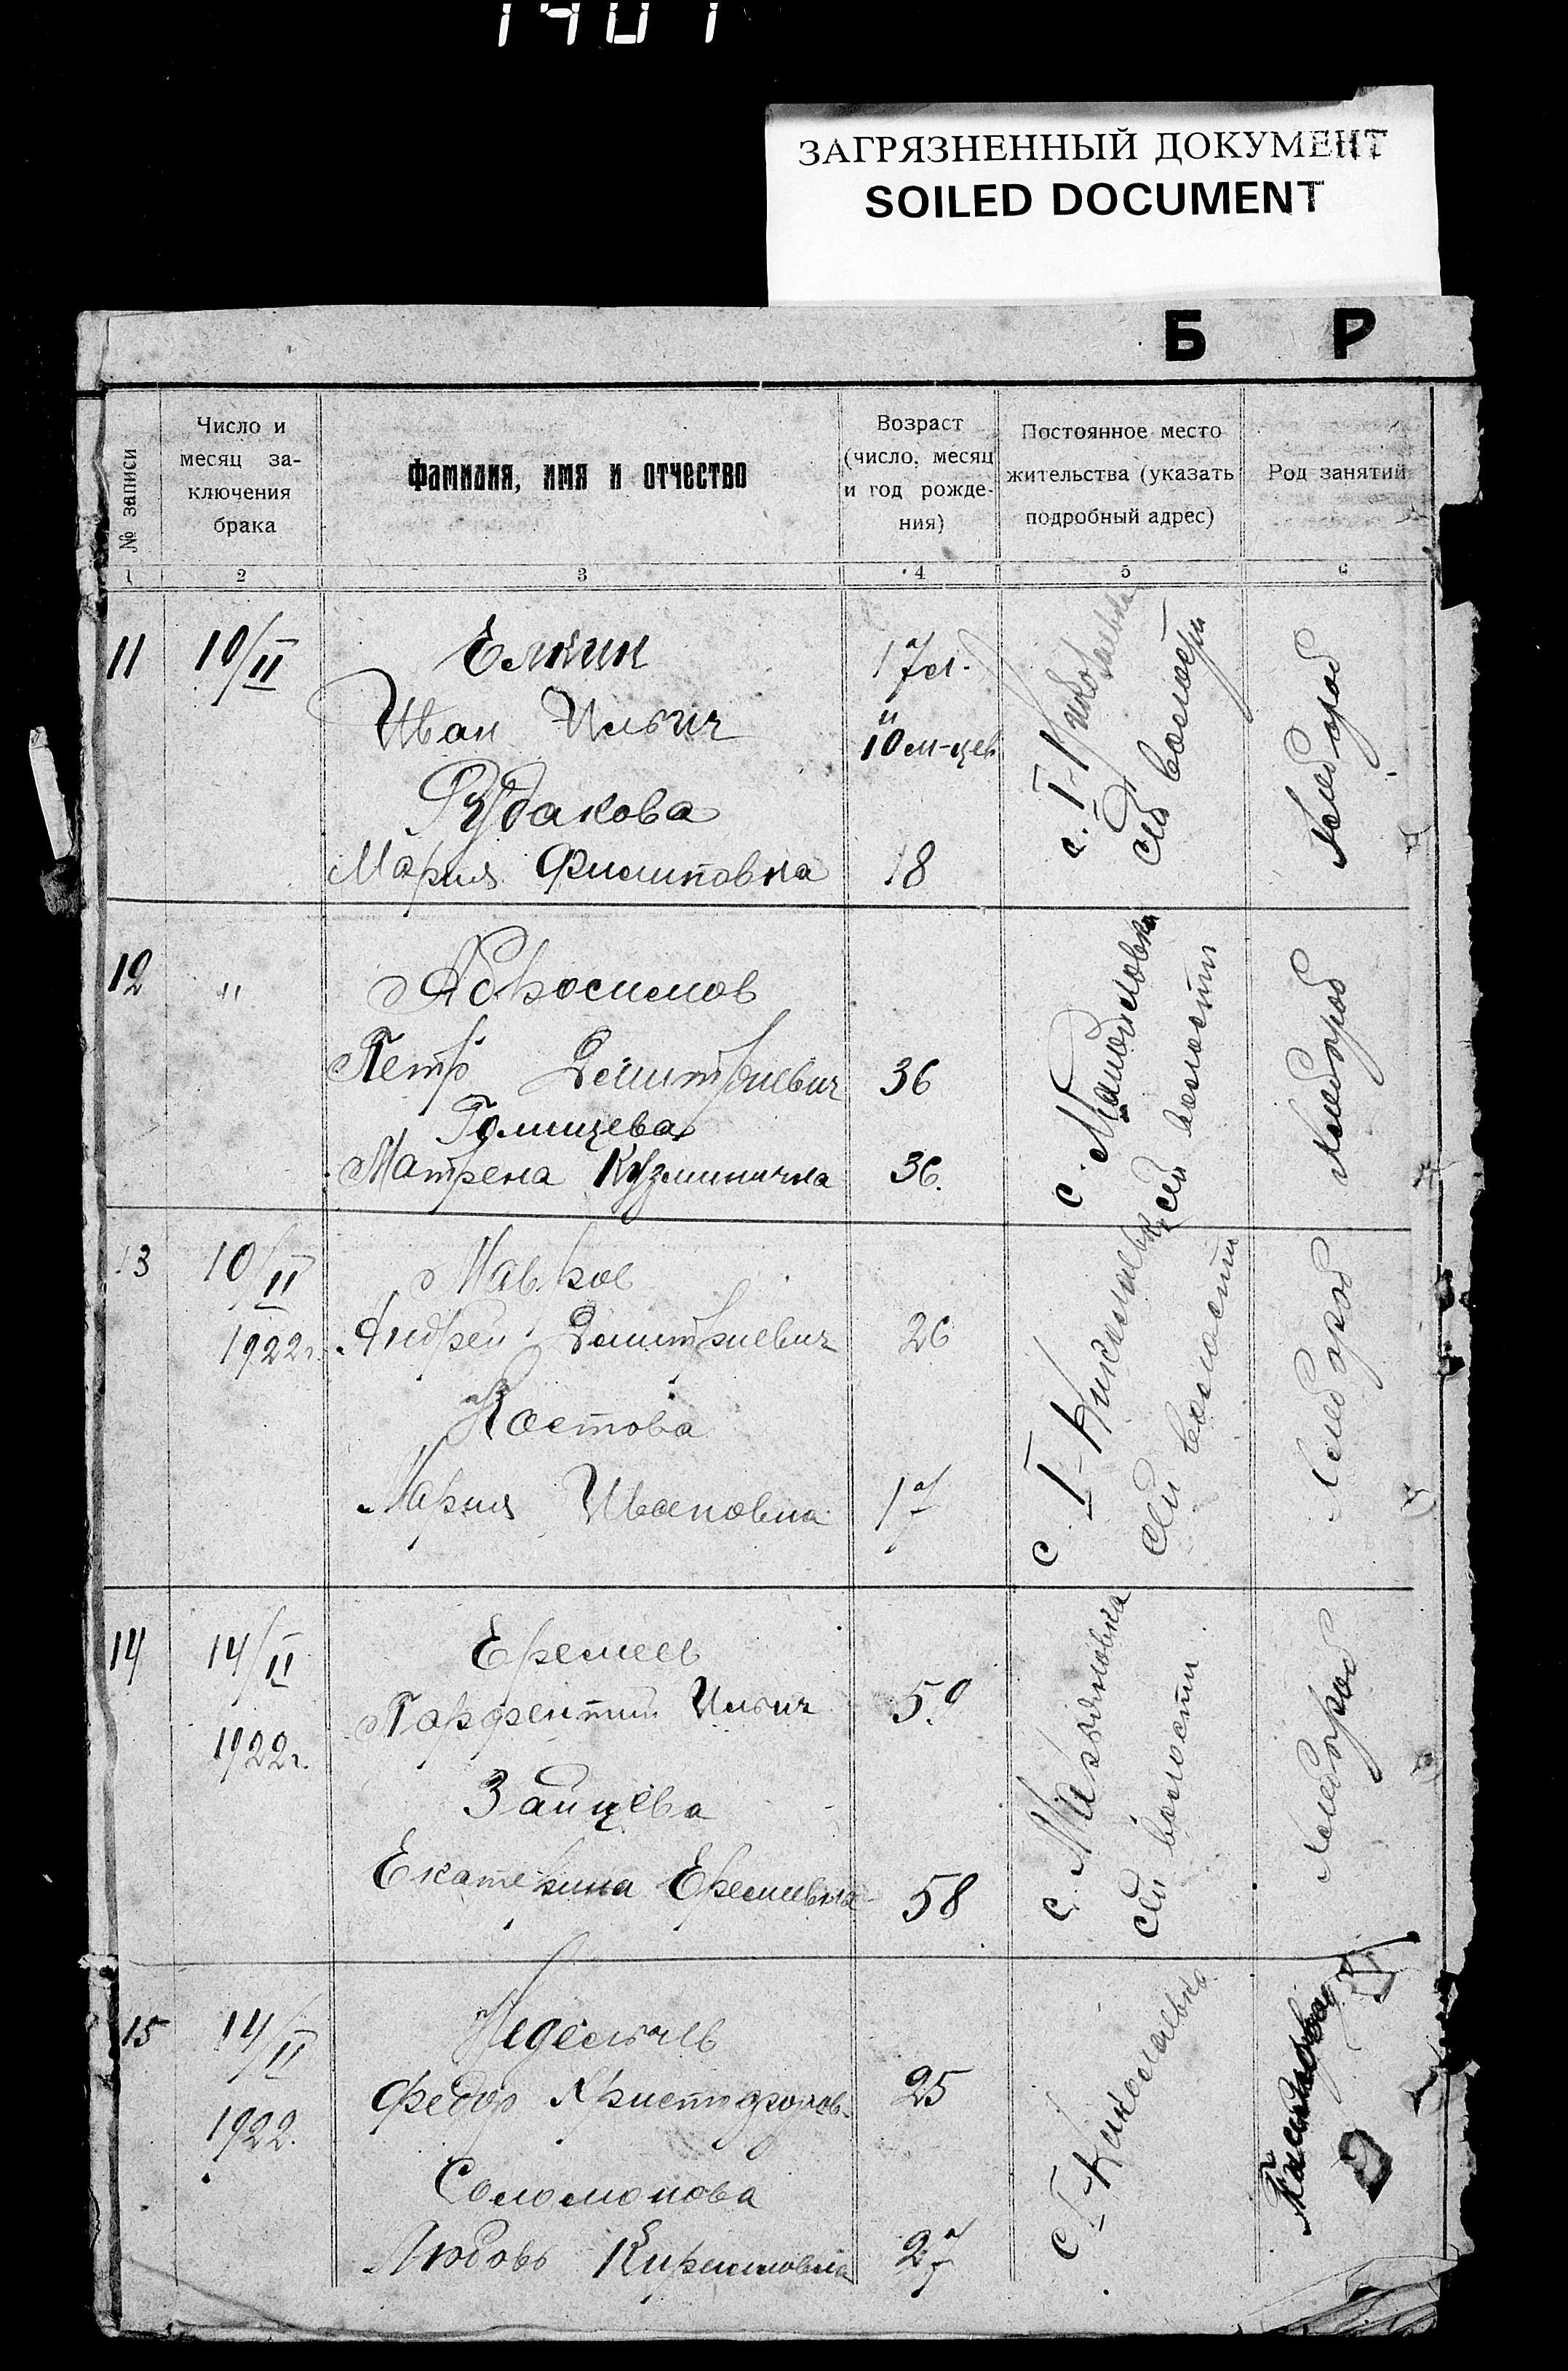 1401
ЗАГРЯЗНЕННЫЙ ДОКУМЕНТ
SOILED DOCUMENT
Б Р
№ записи
Число и
месяц за-
ключения
брака
Фамилия, имя и отчество
Возраст
(число, месяц
и год рожде-
ния)
Постоянное место
жительства (указать
подробный адрес)
Род занятий
1 2 3 4 5 6
11 10/II
Елкин
Иван Ильич
17 л.
и
10 м-цев
Рудакова
Мария Филиповна
18
с. I-Николаевка
сей волости
Хлебороб
12 "
Абросимов
Петр Дмитриевич 36
Голищева
Матрена Кузминична 36.
с.
сей волости
Хлебороб
13 10/II
1922 г.
Мавров
Андрей Дмитриевич 26
Костова
Мария Ивановна 17
с I-Николаевк
сей волости
Хлебороб
14 14/II
1922 г.
Еремеев
Парфентий Ильич
Зайцева
Екатерина Еремевна 58
с.
сей волости
Хлебороб
15 14/II
1922.
Федор Христофоров. 25
Соломонова
Любовь Кириловна 27
с I-Николаевка